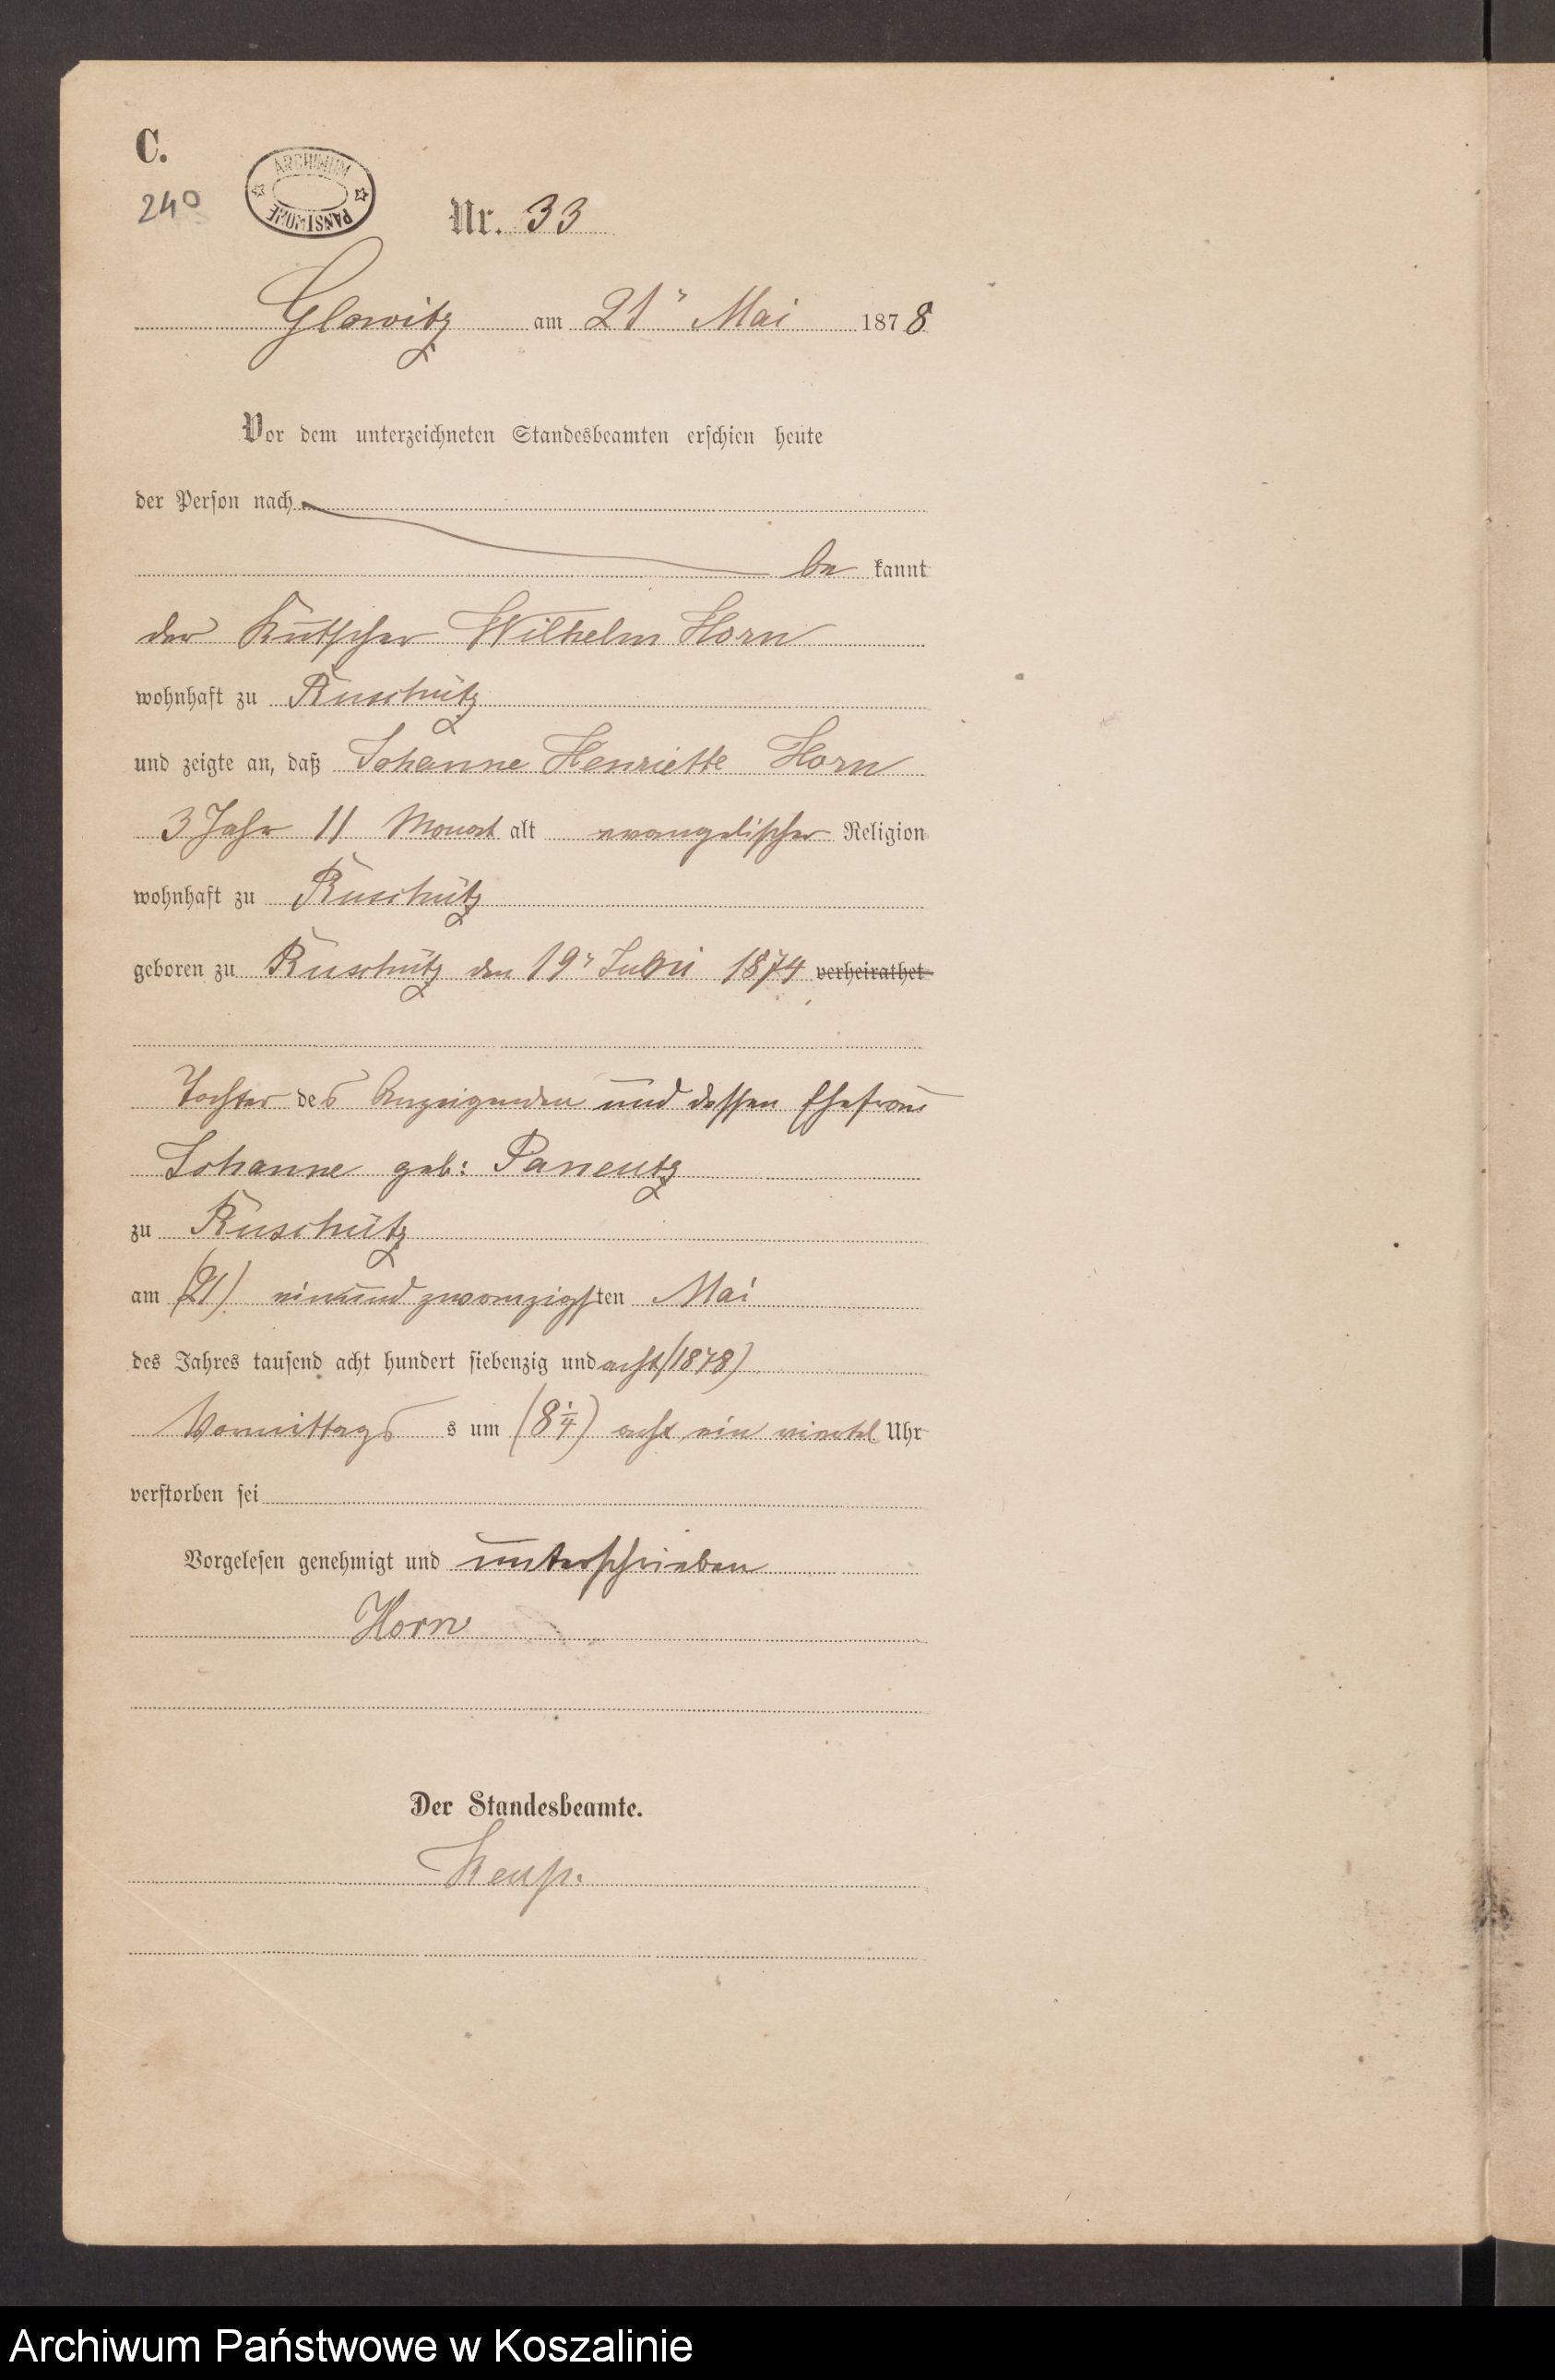 C.
240
ARCHIWUM PAŃSTWOWE
Nr. 33
Glowitz am 21ᵗ Mai 1878
Vor dem unterzeichneten Standesbeamten erschien heute
der Person nach
be kannt
der Kutscher Wilhelm Horn
wohnhaft zu Ruschütz
und zeigte an, daß Johanne Henriette Horn
3 Jahr 11 Monat alt evangelischer Religion
wohnhaft zu Ruschütz
geboren zu Ruschütz den 19ᵗ 1874 verheirathet
Tochter des Anzeigenden und dessen Ehefrau
Johanne geb: Panentz
zu Ruschütz
am (21) einundzwanzigsten Mai
des Jahres tausend acht hundert siebenzig und acht (1878)
Vormittags s um (8¼) acht ein viertel Uhr
verstorben sei
Vorgelesen genehmigt und unterschrieben
Horn
Der Standesbeamte.
Archiwum Państwowe w Koszalinie